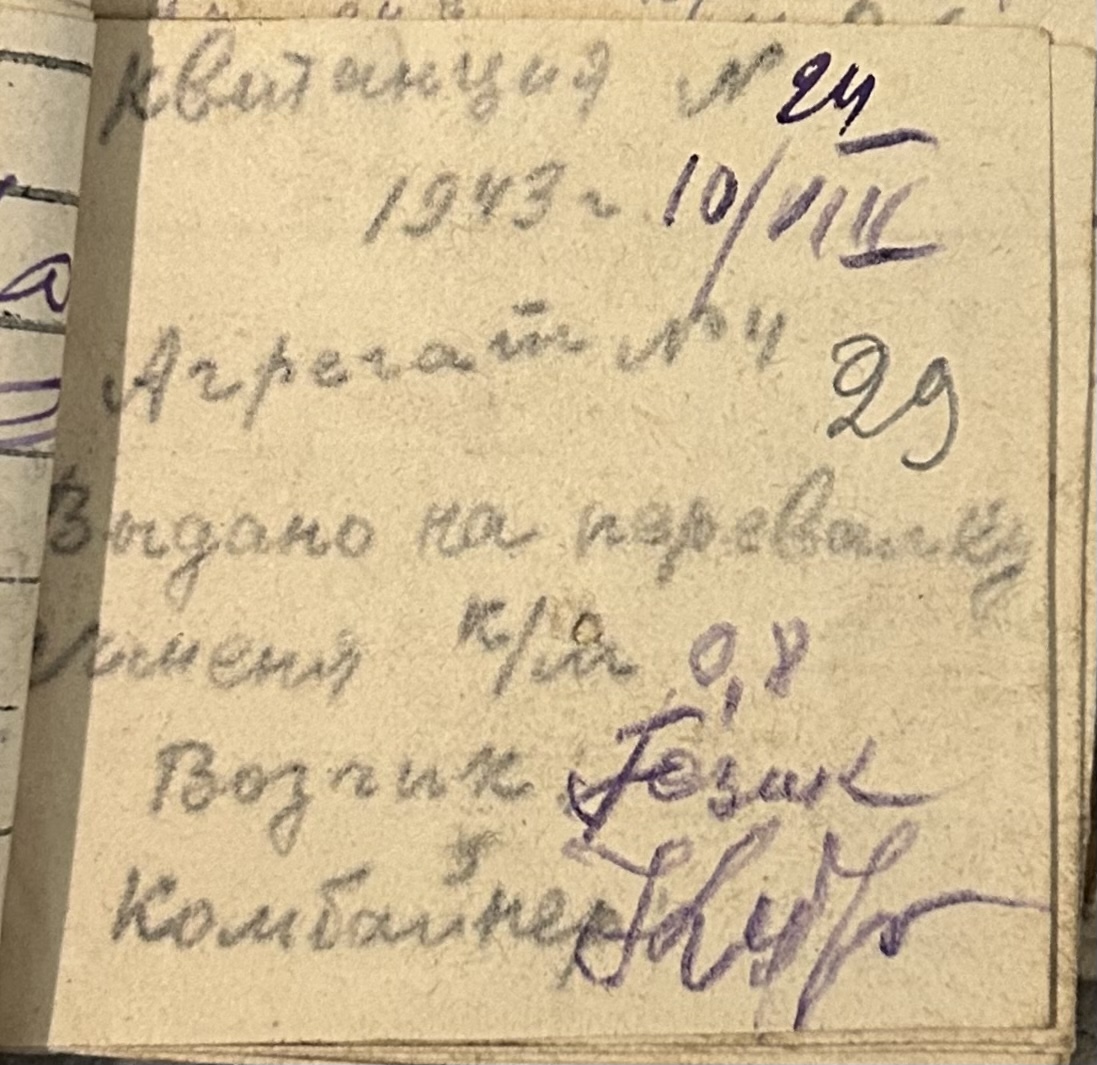 Квитанция № 24
1943 г. 10/VIII
Агрегат № 4
29
Выдано на перевалку
Ячменя к/м 0,8
Возчик
Комбайнер